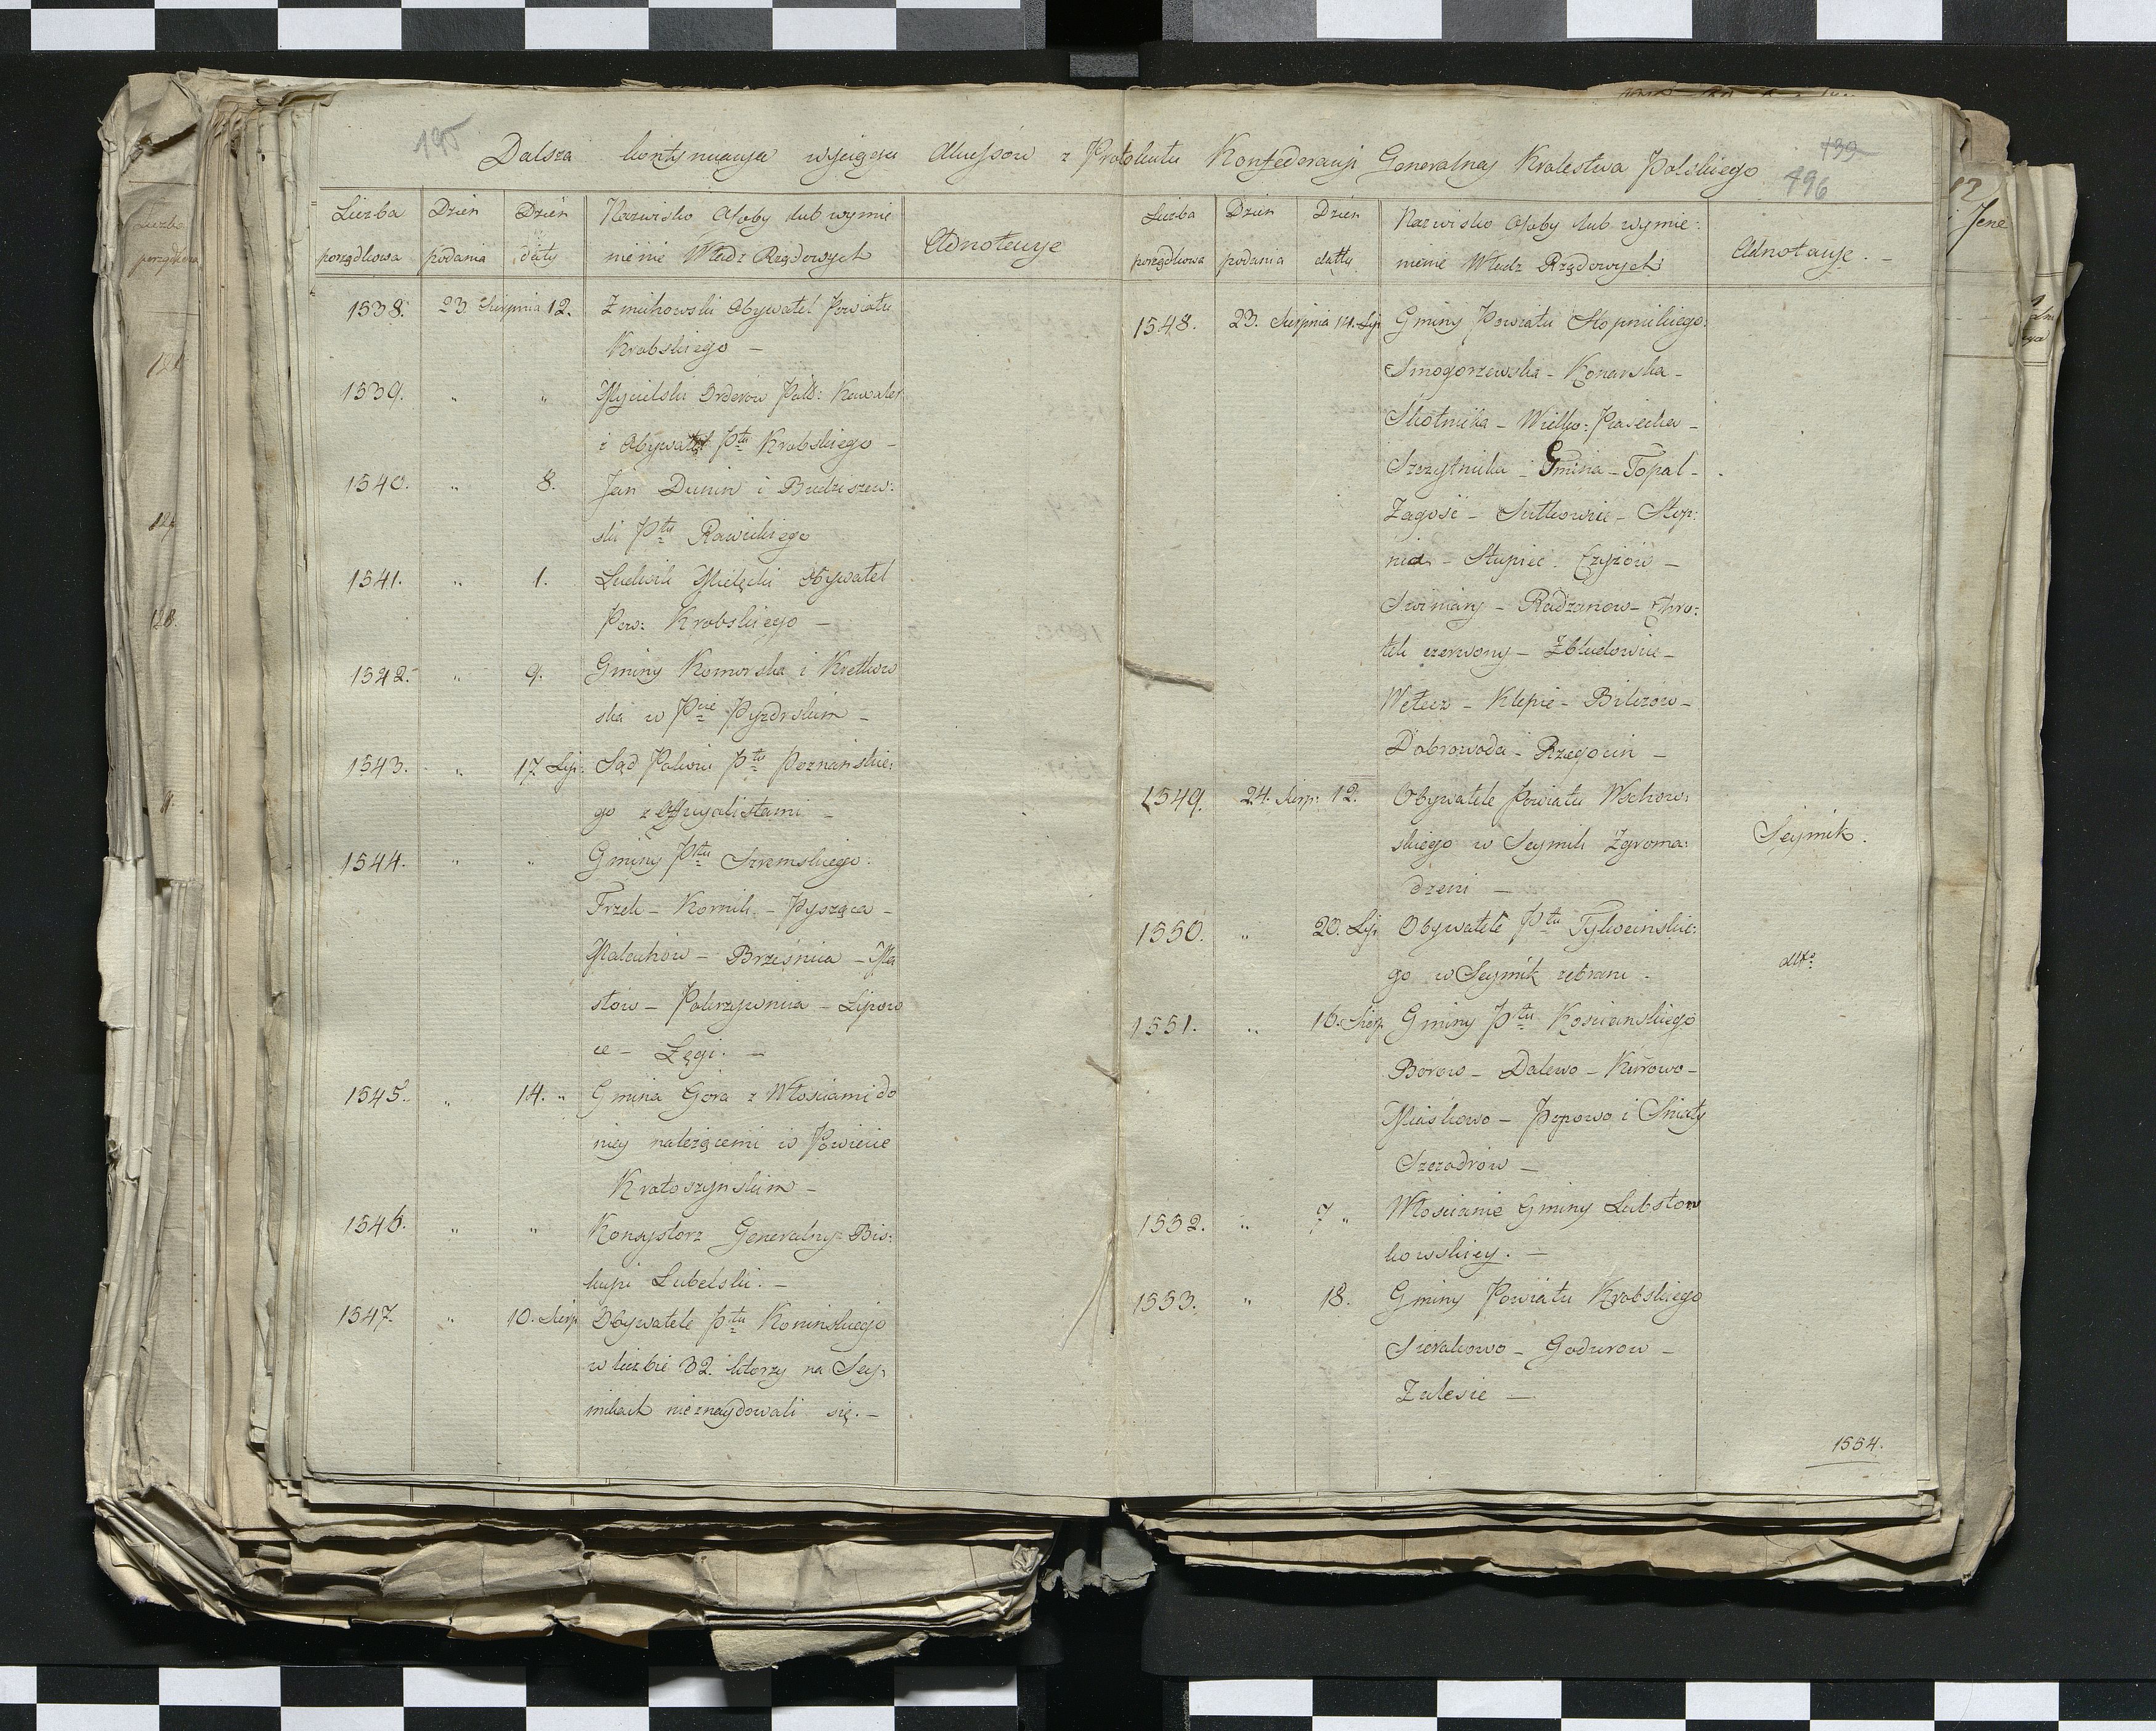 195
139
196
Dalsza kontynuacya wyciągu Akcessów z Protokułu Konfederacyi Generalney Krolestwa Polskiego
Liczba porządkowa
Dzień podania
Dzień daty
Nazwisko Osoby lub wymie
nienie Władz Rządowych
Adnotacye
1538. 23. Sierpnia 12. Zmichowski Obywatel Powiatu
Krobskiego –
1539. " " Mycielski Orderow Pols: Kawaler
i Obywatel Ptu Krobskiego –
1540. " 8. Jan Dunin i Budziszew:
ski Ptu Rawickiego
1541. " 1. Ludwik Mielęcki Obywatel
Pow: Krobskiego –
1542. " 9. Gminy Komorska i Kretkow
ska w Pcie Pyzdrskim –
1543. " 17. Lip: Sąd Pokoiu Ptu Poznańskie:
go z Officyalistami –
1544. " " Gminy Ptu Szremskiego:
Trzek – Kornik – Pysząca –
Malachów – Brześnica – Ma
słow – Pokrzywnica – Lipow
ce – Łęgi. –
1545. " 14. " Gmina Góra z Włosciami do
niey należącemi w Powiecie
Krotoszynskim –
1546. " " Konsystorz Generalny Bis:
kupi Lubelski. –
1547. " 10. Sierp Obywatele Ptu Koninskiego
w liczbie 32. ktorzy na Sey:
mikach nieznaydowali się. –
Liczba porządkowa
Dzień podania
Dzień datty
Nazwisko Osoby lub wymie:
nienie Władz Rządowych
Adnotacye. –
1548. 23. Sierpnia 14. Lip Gminy Powiatu Stopnickiego:
Smogorzewska – Konarska –
Skotnika – Wielko: Piasecka –
Szczytnika – Gmina – Topal –
Zagość – Sutkowic – Stop:
nica – Słupiec. Czyżów –
Swiniary – Radzanow – Chro:
tek czerwony – Zbludowic –
Wełecz – Klepie – Bilczów –
Dobrowoda – Rzegocin –
1549. 24. Sierp: 12. Obywatele Powiatu Wschow:
skiego w Seymik Zgroma:
dzeni –
Seymik.
1550. " 20. Lip Obywatele Ptu Tykocinskie:
go w Seymik zebrani –
dtto:
1551. " 16. Sierp. Gminy Ptu Koscianskiego
Borow – Dalewo – Kurowo –
Miaskowo – Popowo i Sniaty
Szczodrow –
1552. " 7 " Włoscianie Gminy Lubston
kowskiey. –
1553. " 18. Gminy Powiatu Krobskiego
Sierakowo – Godurow –
Zalesie –
1554.